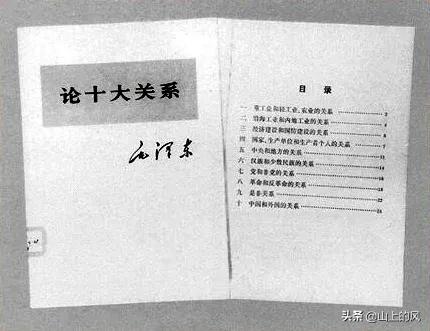 论十大关系
毛泽东
目录
一 重工业和轻工业、农业的关系 2
二 沿海工业和内地工业的关系 4
三 经济建设和国防建设的关系 6
四 国家、生产单位和生产者个人的关系 7
五 中央和地方的关系 11
六 汉族和少数民族的关系 14
七 党和非党的关系 16
八 革命和反革命的关系 18
九 是非关系
十 中国和外国的关系
头条 @山上的风